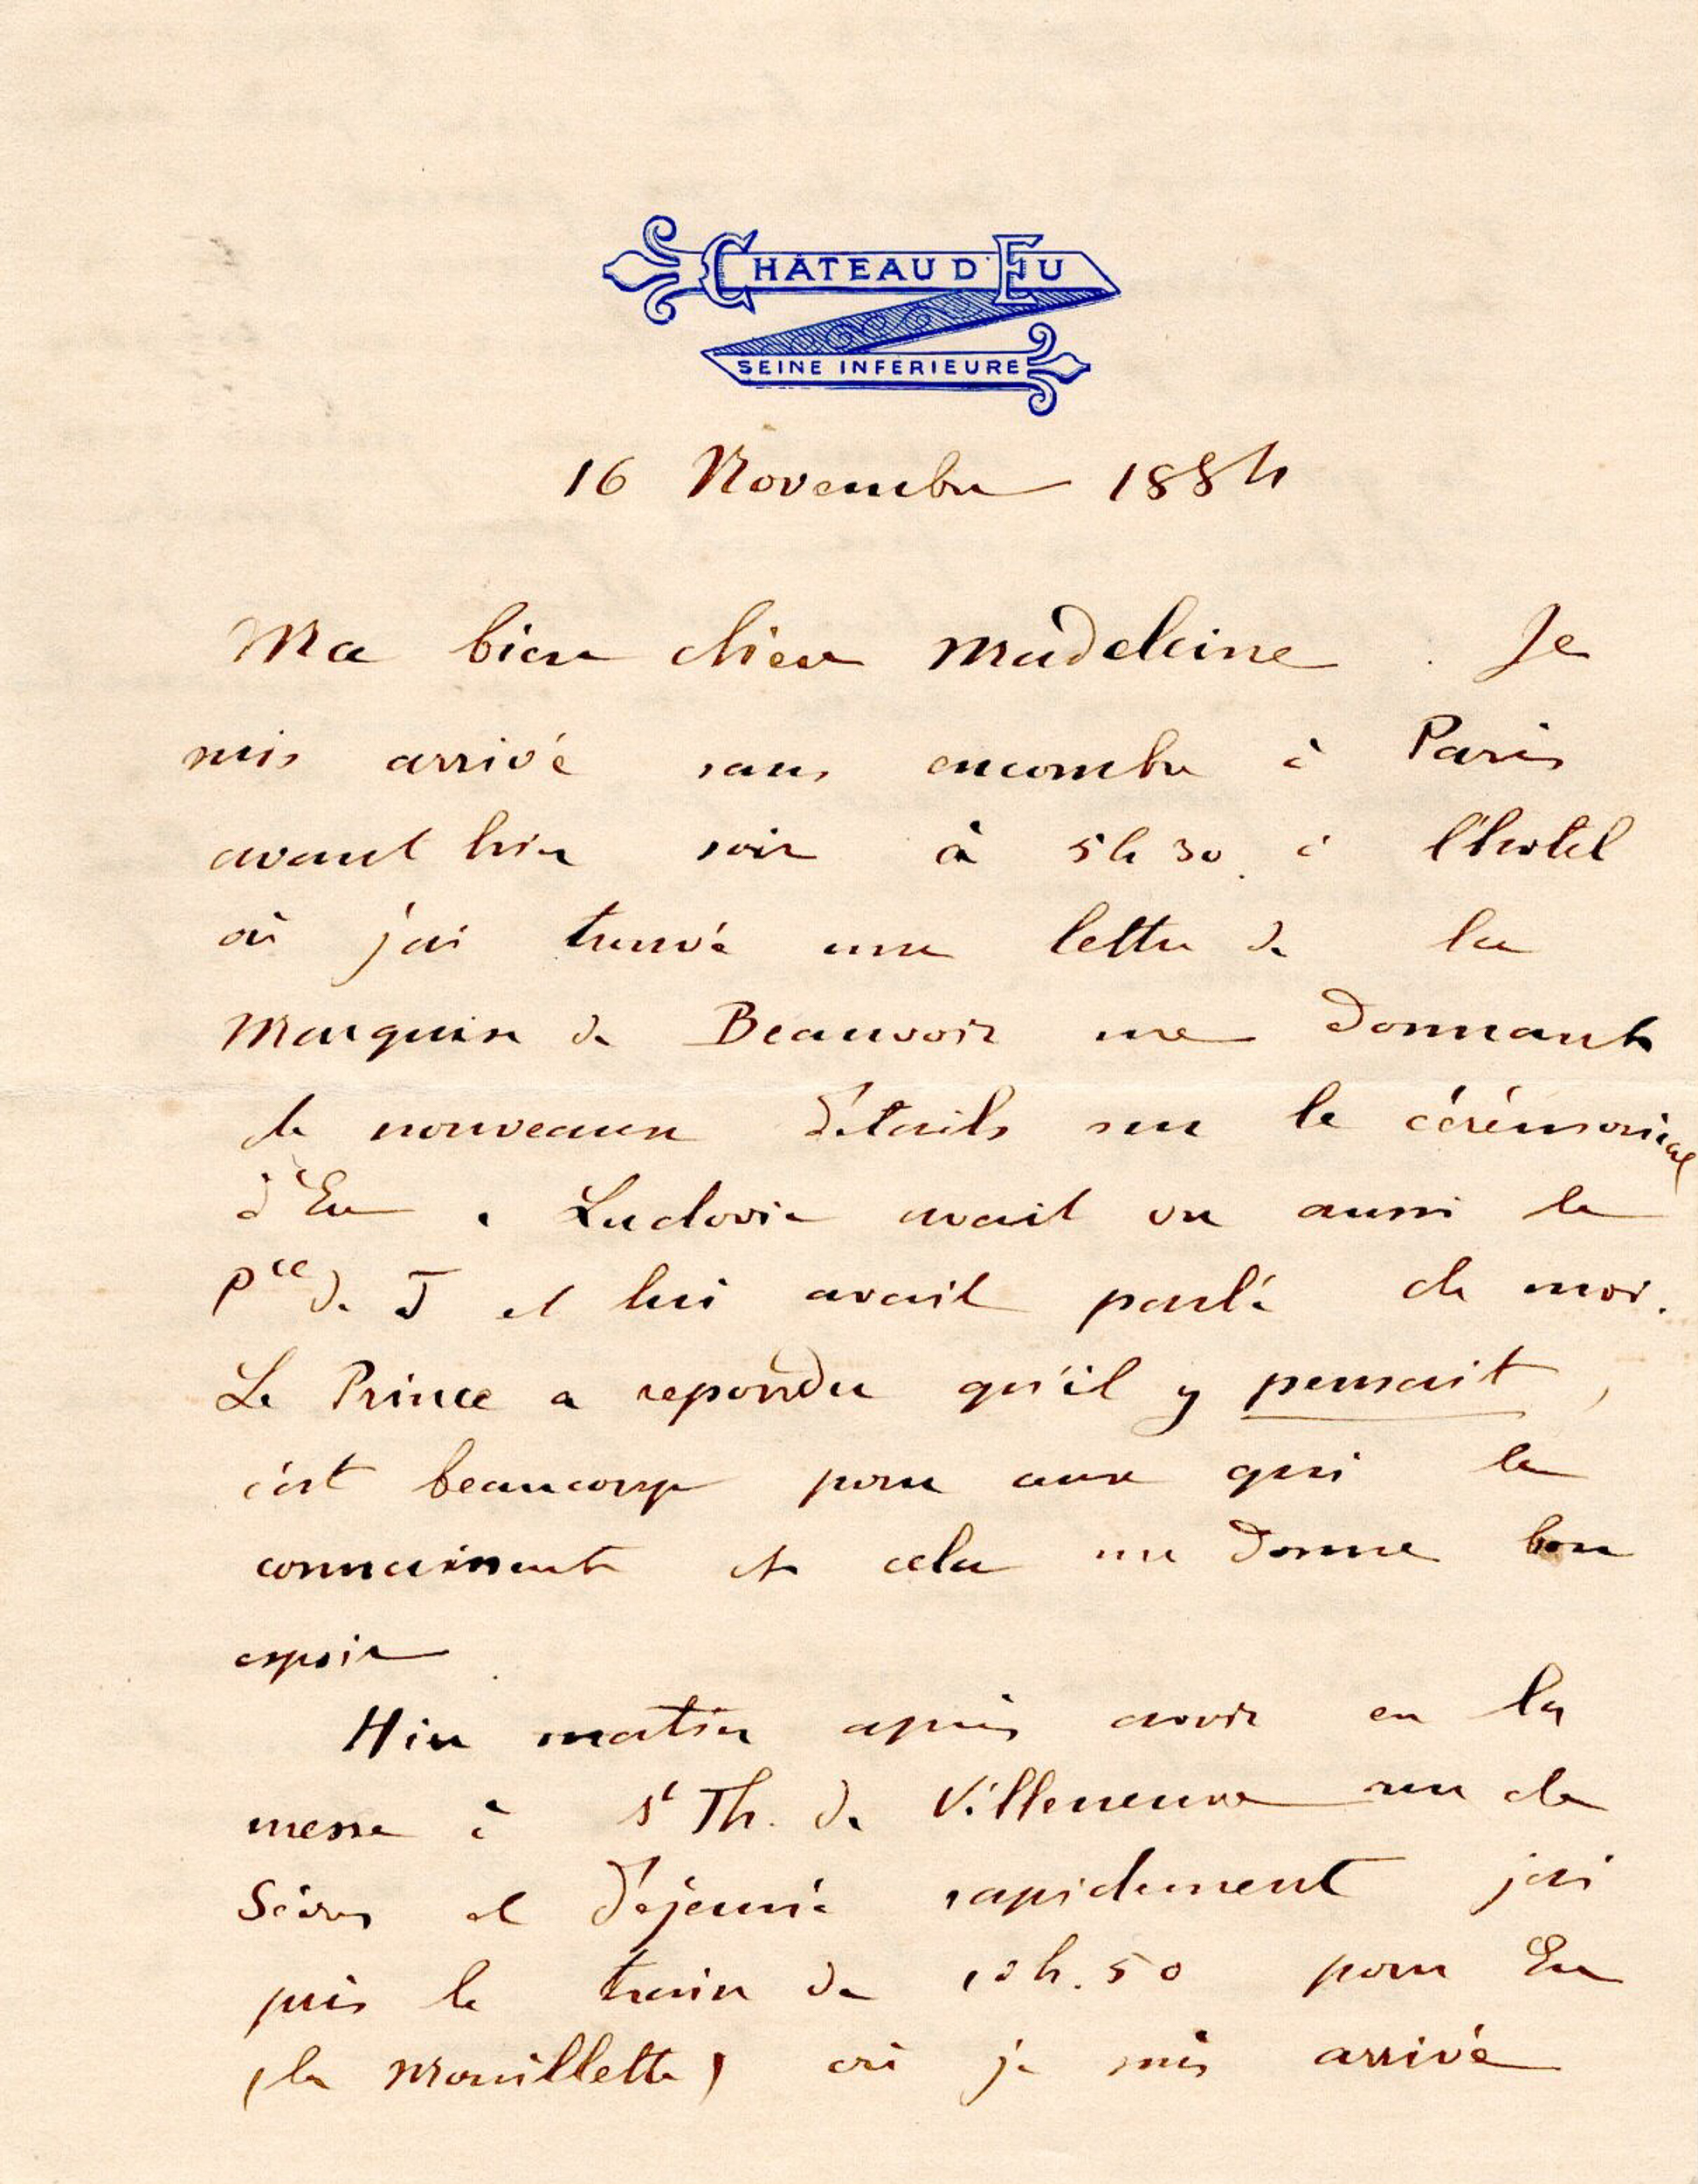 CHÂTEAU D'EU
SEINE INFÉRIEURE
16 Novembre 1884
Ma bien chère Madeleine. Je
suis arrivé sans encombre à Paris
avant hier soir à 5h30. à l'hotel
où j'ai trouvé une lettre de la
Marquise de Beauvoir me donnant
de nouveaux détails sur le cérémonial
d'Eu. Ludovic avait vu aussi le
Pce de J et lui avait parlé de moi.
Le Prince a repondu qu'il y pensait,
c'est beaucoup pour ceux qui le
connaissent et cela me donne bon
espoir.
Hier matin après avoir eu la
messe à St Th. de Villeneuve rue de
Sèvres et déjeuné rapidement j'ai
pris le train de 10h.50 pour Eu
(la Mouillette) où je suis arrivé